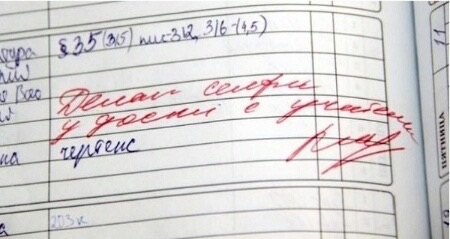 §35 (3,5) пис-312, 316-(4,5)
Делал селфи
у доски с учителем
чертеж
203к
11
ПЯТНИЦА